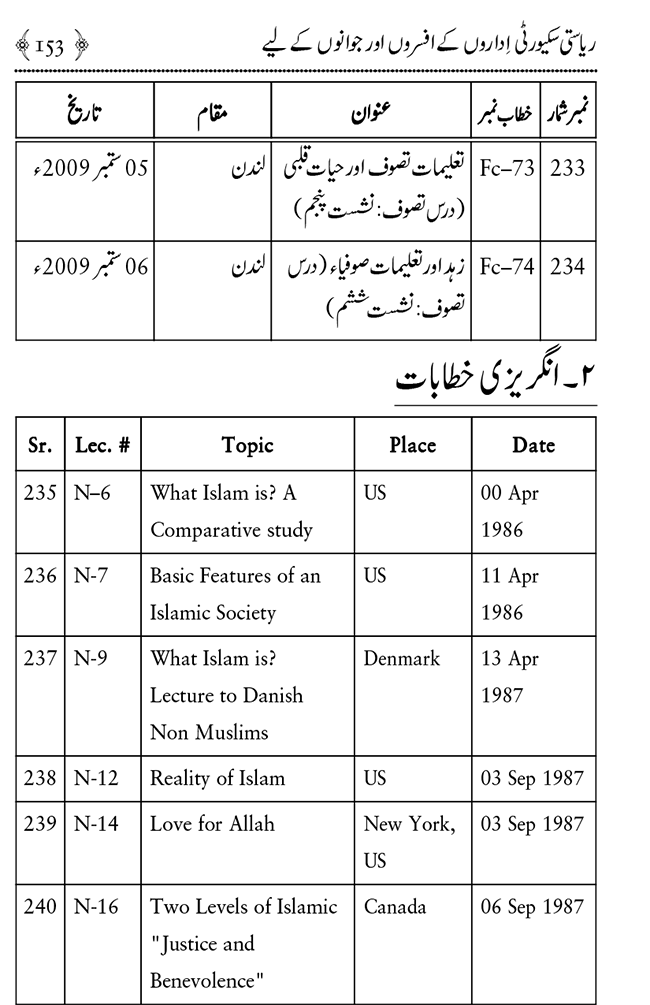 ریاستی سکیورٹی اِداروں کے افسروں اور جوانوں کے لیے ﴿ 153 ﴾
نمبر شمار خطاب نمبر عنوان مقام تاریخ
233 Fc–73 تعلیمات تصوف اور حیات قلبی لندن 05 ستمبر 2009ء
(درس تصوف: نشست پنجم)
234 Fc–74 زہد اور تعلیمات صوفیاء (درس لندن 06 ستمبر 2009ء
تصوف: نشست ششم)
٢۔ انگریزی خطابات
Sr. Lec. # Topic Place Date
235 N–6 What Islam is? A US 00 Apr
Comparative study 1986
236 N-7 Basic Features of an US 11 Apr
Islamic Society 1986
237 N-9 What Islam is? Denmark 13 Apr
Lecture to Danish 1987
Non Muslims
238 N-12 Reality of Islam US 03 Sep 1987
239 N-14 Love for Allah New York, 03 Sep 1987
US
240 N-16 Two Levels of Islamic Canada 06 Sep 1987
"Justice and
Benevolence"